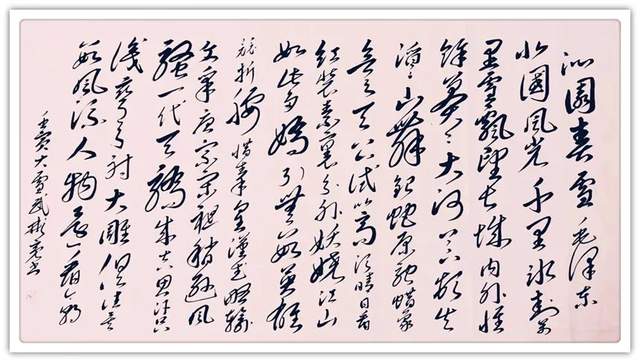 沁園春雪 毛泽东
北國風光千里冰封万
里雪飄望长城内外惟
餘莽々大河上下頓失
滔々山舞銀蛇原馳蜡象
欲与天公试比高须晴日看
红装素裹分外妖娆江山
如此多嬌引無数英雄
竞折腰惜秦皇漢武略输
文采唐宗宋祖稍逊風
骚一代天骄成吉思汗只
识弯弓射大雕俱往矣
数風流人物还看今朝
壬寅大雪武彬亮书